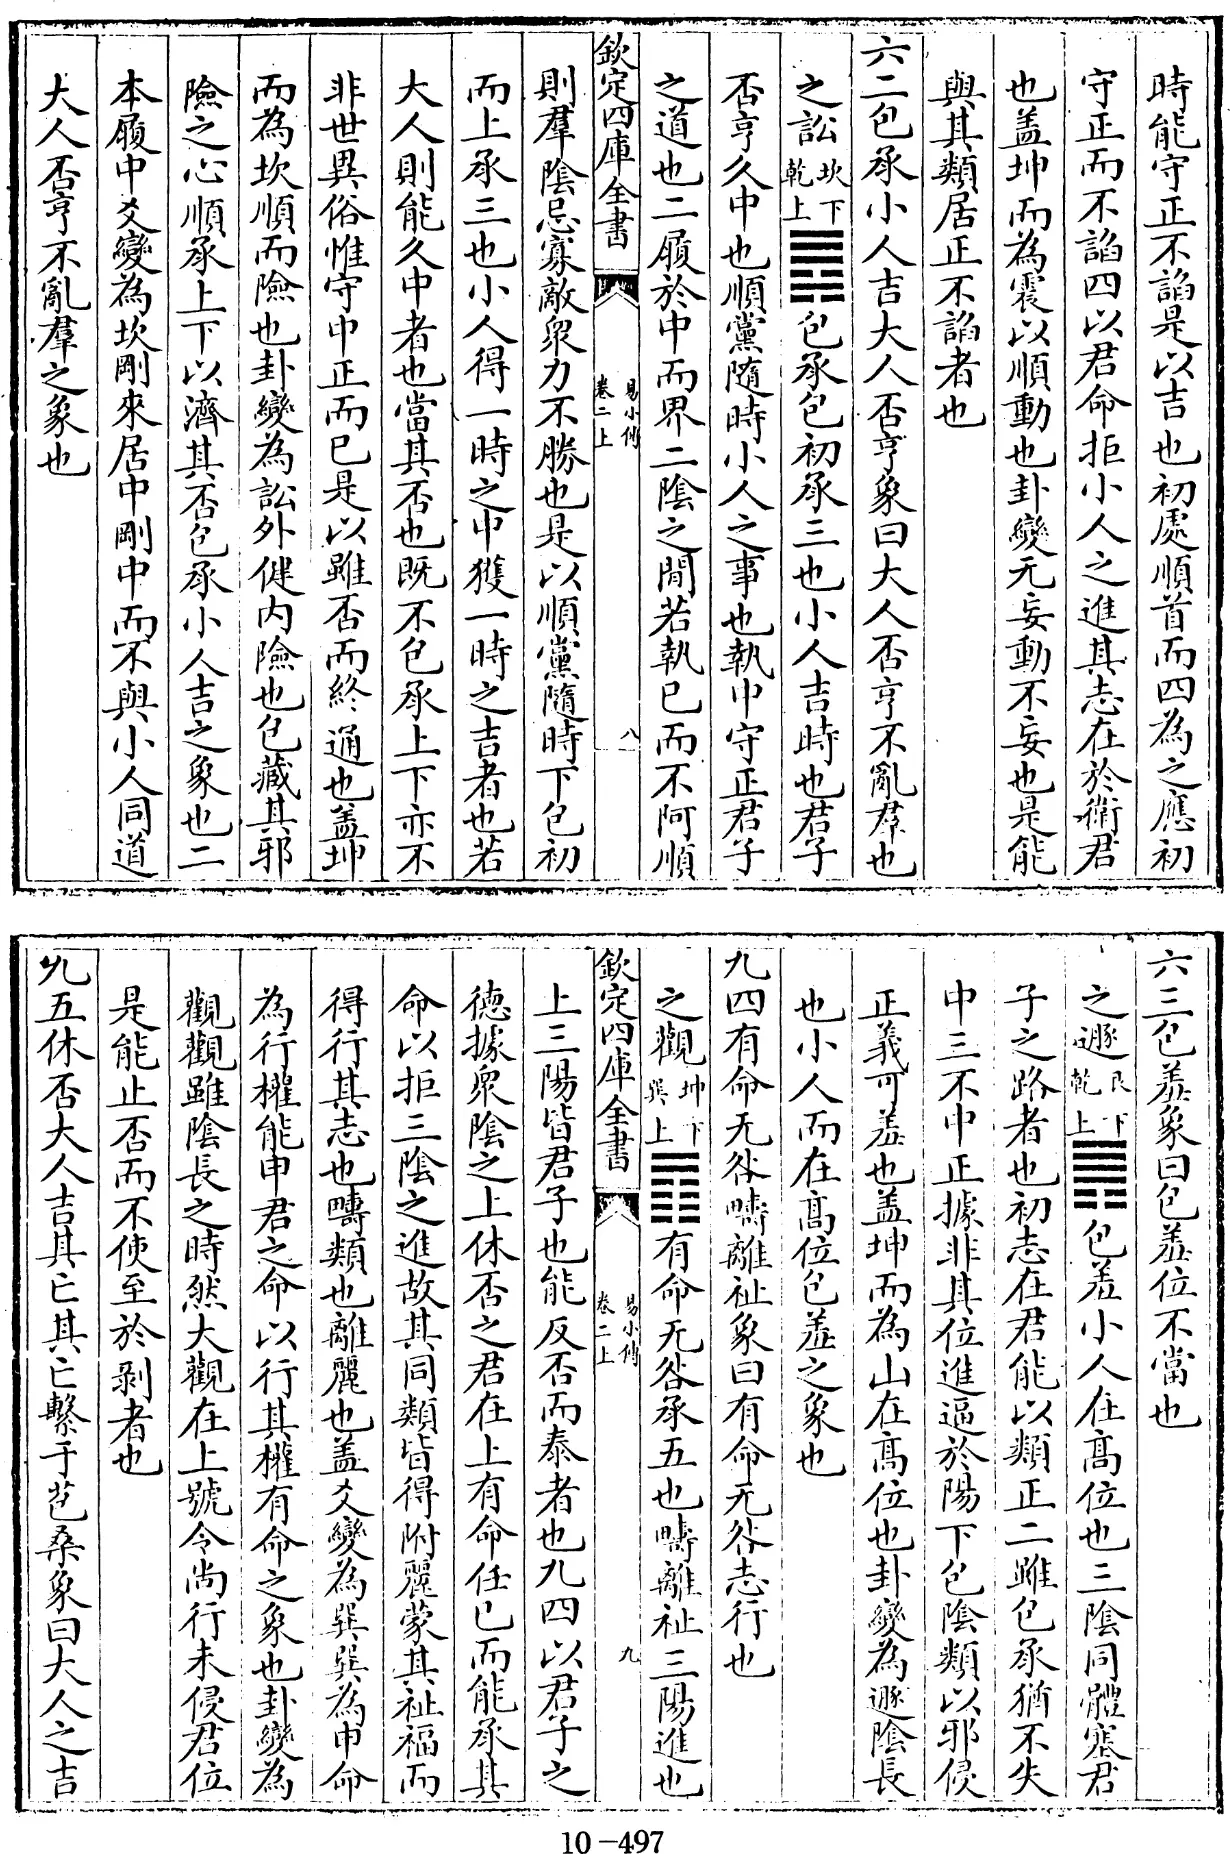 時能守正不諂是以吉也初處順首而四為之應初
守正而不諂四以君命拒小人之進其志在於衛君
也盖坤而為震以順動也卦變无妄動不妄也是能
與其類居正不諂者也
六二包承小人吉大人否亨象曰大人否亨不亂羣也
之訟坎下乾上包承包初承三也小人吉時也君子
否亨久中也順黨隨時小人之事也執中守正君子
之道也二履於中而界二陰之間若執已而不阿順
欽定四庫全書
易小傳
卷二上
八
則羣陰忌寡敵衆力不勝也是以順黨隨時下包初
而上承三也小人得一時之中獲一時之吉者也若
大人則能久中者也當其否也既不包承上下亦不
非世異俗惟守中正而已是以雖否而終通也盖坤
而為坎順而險也卦變為訟外健内險也包藏其邪
險之心順承上下以濟其否包承小人吉之象也二
本履中爻變為坎剛來居中剛中而不與小人同道
大人否亨不亂羣之象也
六三包羞象曰包羞位不當也
之遯艮下乾上包羞小人在髙位也三陰同體塞君
子之路者也初志在君能以類正二雖包承猶不失
中三不中正據非其位進逼於陽下包陰類以邪侵
正義可羞也盖坤而為山在髙位也卦變為遯陰長
也小人而在髙位包羞之象也
九四有命无咎疇離祉象曰有命无咎志行也
之觀坤下巽上有命无咎承五也疇離祉三陽進也
欽定四庫全書
易小傳
卷二上
九
上三陽皆君子也能反否而泰者也九四以君子之
德據衆陰之上休否之君在上有命任已而能承其
命以拒三陰之進故其同類皆得附麗蒙其祉福而
得行其志也疇類也離麗也盖爻變為巽巽為申命
為行權能申君之命以行其權有命之象也卦變為
觀觀雖陰長之時然大觀在上號令尚行未侵君位
是能止否而不使至於剥者也
九五休否大人吉其亡其亡繫于苞桑象曰大人之吉
10-497